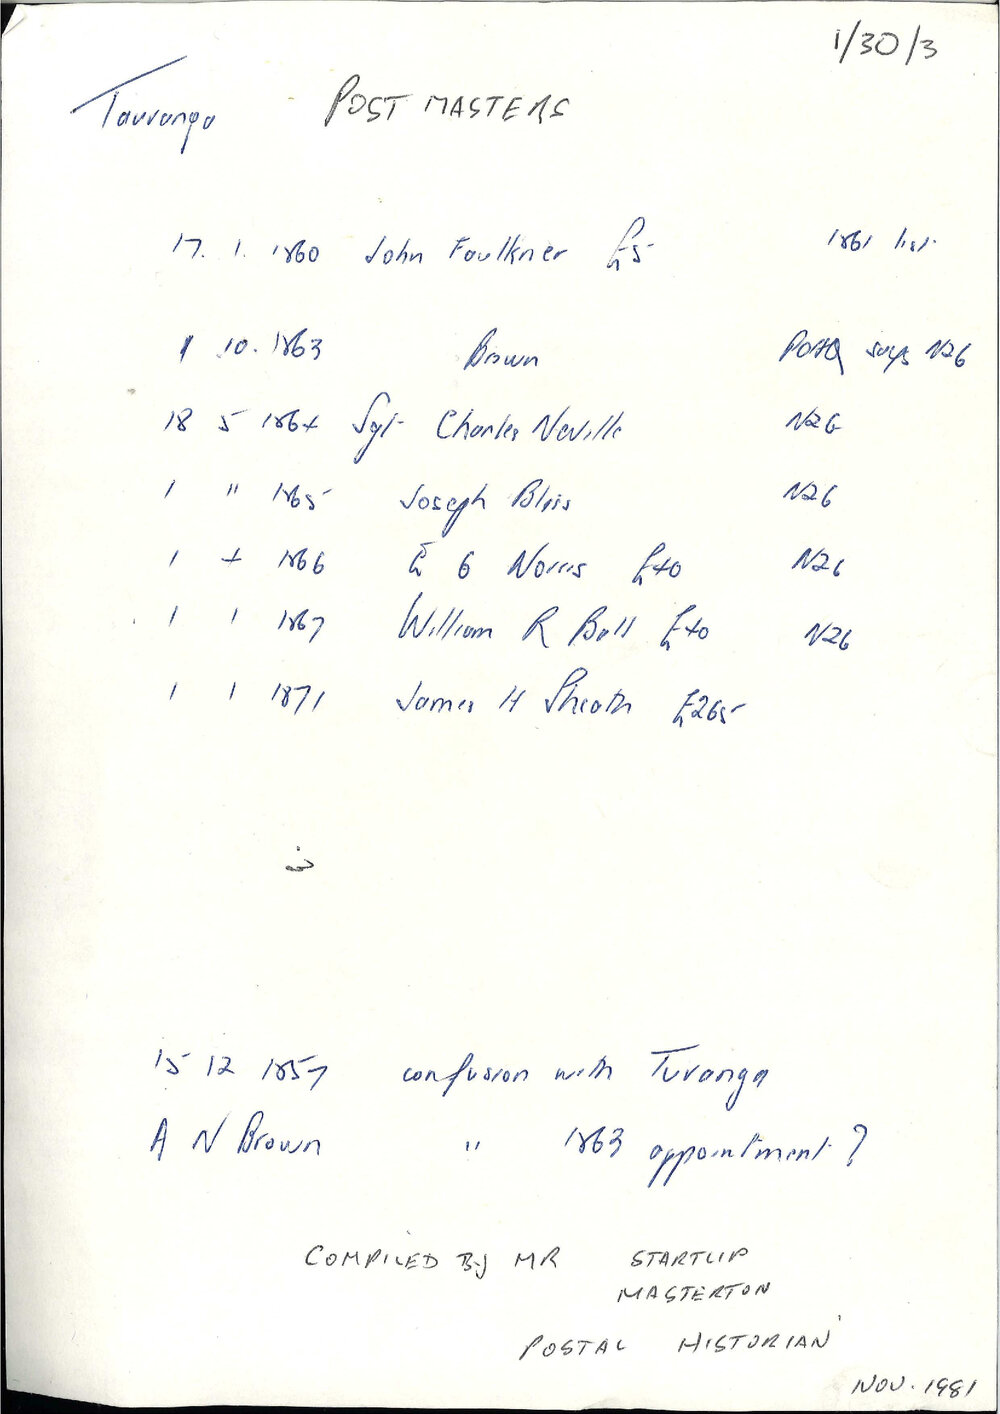 1/30/3
Tauranga POST MASTERS
17. 1. 1860 John Faulkner £5 1861 list
1 10. 1863 Brown says N26
18 5 1864 Sgt Charles Neville N26
1 " 1865 Joseph Bliss N26
1 4 1866 E G Norris £40 N26
1 1 1867 William R Ball £40 N26
1 1 1871 James H Sheath £265
15 12 1857 confusion with Turanga
A N Brown " 1863 appointment ?
COMPILED By MR STARTUP
MASTERTON
POSTAL HISTORIAN
NOV. 1981